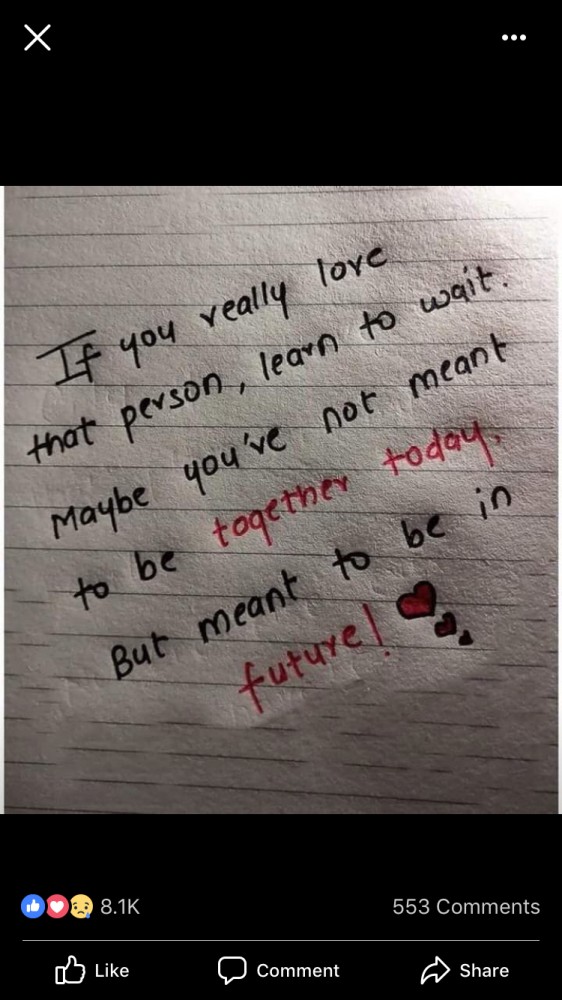 If you really love
that person, learn to wait.
Maybe you've not meant
to be together today,
But meant to be in
future!
8.1K
553 Comments
Like
Comment
Share